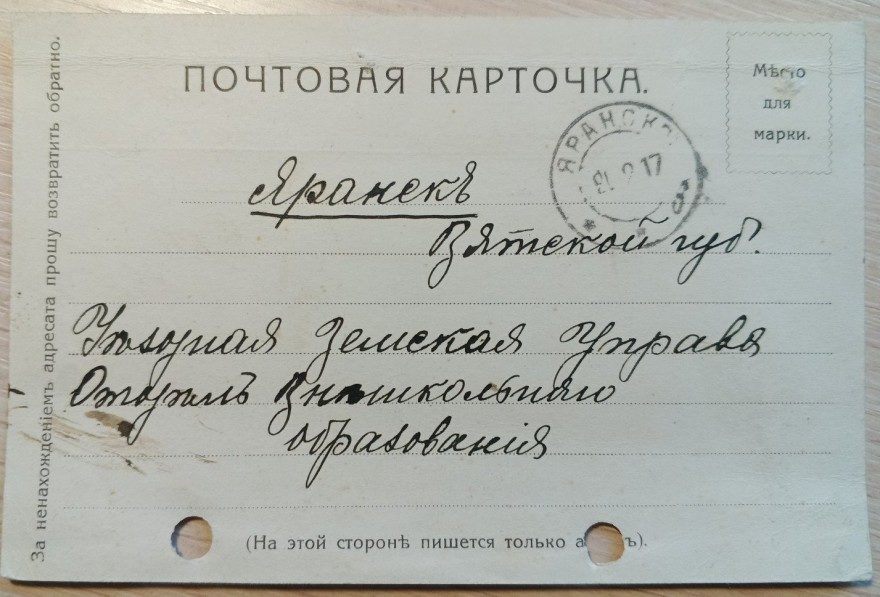 ПОЧТОВАЯ КАРТОЧКА.
Мѣсто
для
марки.
ЯРАНСКЪ
2 17
Яранскъ
Вятской губ.
Уѣздная Земская Управа
Отдѣлъ Внѣшкольнаго
образованія
(На этой сторонѣ пишется только
За ненахожденіемъ адресата прошу возвратить обратно.